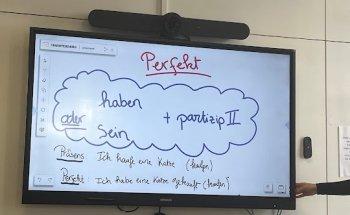 Perfekt
haben
oder + partizip II
sein
Präsens : Ich kaufe eine Katze (kaufen)
Perfekt : Ich habe eine Katze gekauft (kaufen)